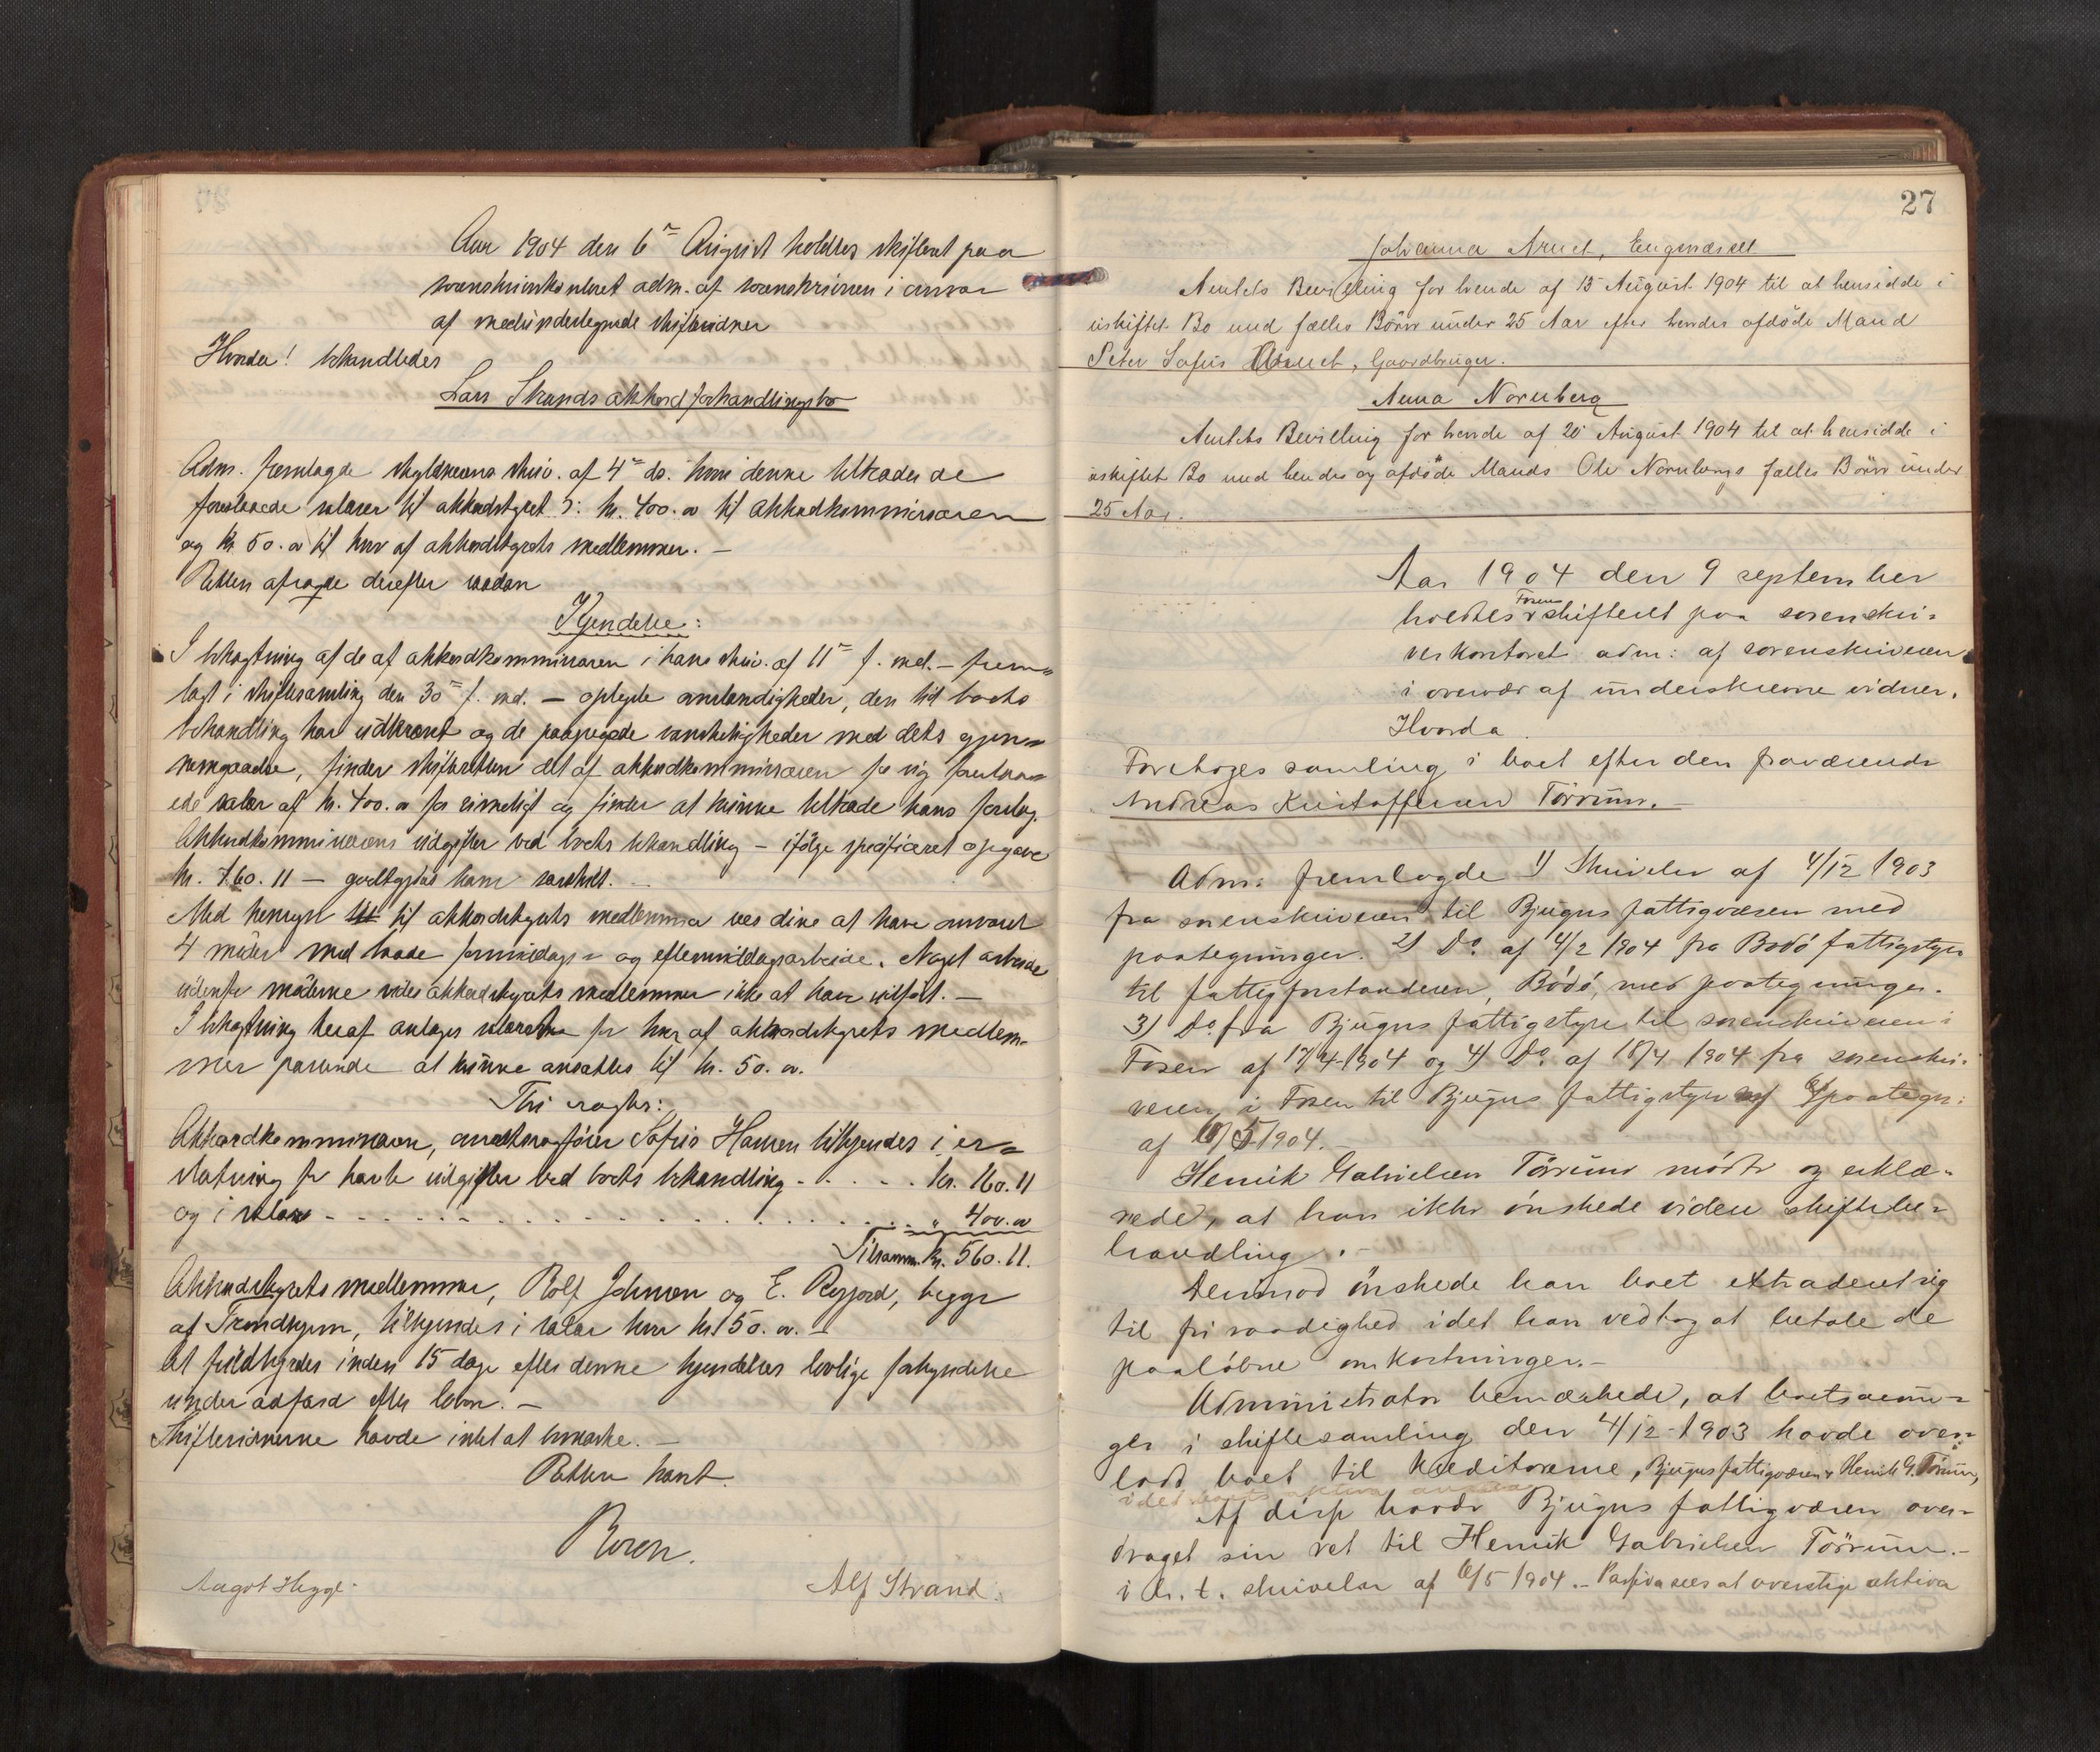 Aar 1904 den 6te August holdtes skifteret paa
sorenskriverkontoret adm. af sorenskriveren i overvær
af medunderlegnede skiftevidner
Hvorda! behandledes
Lars Skands akkordforhandlingsbo
Adm. fremlagde skyldnerens skriv. af 4de ds. hvori denne tiltræder de
foreslaaede salærer til akkordstyret ɔ: kr. 400.00 til akkordkommissæren
og kr 50.00 til hver af akkordstyrets medlemmer. —
Retten afsagde derefter saadan
Kjendelse:
I betragtning af de af akkordkommissæren i hans skriv. af 11te f. md. — frem=
lagt i skiftesamling den 30te f. md. — oplyste omstændigheder, den tid boets
behandling har udkrævet og de paapegede vanskeligheder med dets gjen=
nemgaaelse, finder skifteretten det af akkordkommissæren for sig foreslaa=
ede salær af kr. 400.00 for rimeligt og finder at kunne tiltræde hans forslag.
Akkordkommissærens udgifter ved boets behandling — ifølge specificeret opgave
kr. 160.11 — godtgjøres ham særskilt. —
Med hensyn til akkordstyrets medlemmer sees disse at have overværet
4 møder med baade formiddags= og eftermiddagsarbeide. Noget arbeide
udenfor møderne vides akkordstyrets medlemmer ikke at have udført. —
I betragtning heraf antages salærerne for hver af akkordstyrets medlem=
mer passende at kunne ansættes til kr. 50.00.
Thi eragtes:
Akkordkommissæren, overretssagfører Sofus Hansen tilkjendes i er=
statning for havte udgifter ved boets behandling - . - . . kr. 160.11
og i salær - - - - - - - - - - - " 400.00
Tilsamm. kr. 560.11.
Akkordstyrets medlemmer, Rolf Johnsen og E. Rosfjord, begge
af Trondhjem, tilkjendes i salær hver kr. 50.00. —
At fuldbyrdes inden 15 dage efter denne kjendelses lovlige forkyndelse
under adfærd efter loven. —
Skiftevidnerne havde intet at bemærke. —
Retten hævet.
Aagot Hegge. Alf Strand.
27
Johanna Arnet,
Amtets Bevilling for hende af 15 August 1904 til at hensidde i
uskiftet Bo med fælles Børn under 25 Aar efter hendes afdøde Mand
Peter Sofus Arnet, Gaardbruger.
Anna Nornberg
Amtets Bevilling for hende af 20 August 1904 til at hensidde i
uskiftet Bo med hendes og afdøde Mands Ole Nornbergs fælles Børn under
25 Aar.
Aar 1904 den 9 september
holdtes Fosen skifteret paa sorenskri=
verkontoret adm: af sorenskriveren
i overvær af underskrevne vidner.
Hvorda
Foretoges samling i boet efter den fraværende
Andreas Kristoffersen Tørrum. —
Adm: fremlagde 1) Skrivelse af 4/12 1903
fra sorenskriveren til Bjugns fattigvæsen med
paategninger. 2) Do. af 4/2 1904 fra Bodø fattigstyre
til fattigforstanderen, Bodø, med paategninger.
3) Do. fra Bjugns fattigstyre til sorenskriveren i
Fosen af 17/4-1904 og 4) Do. af 18/4 1904 fra sorenskri=
veren i Fosen til Bjugns fattigstyre med paategn:
af 6/5 1904. —
Henrik Gabrielsen Tørrum mødte og erklæ=
rede, at han ikke ønskede viden skiftebe=
handling. —
Derimod ønskede han boet extraderet sig
til fri raadighed idet han vedtog at betale de
paaløbne omkostninger. —
Administrator bemærkede, at boets arvin=
ger i skiftesamling den 4/12-1903 havde over=
ladt boet til kreditorerne, Bjugns fattigvæsen & Henrik G. Tørrum,
Af disse havde Bjugns fattigvæsen over=
draget sin ret til Henrik Gabrielsen Tørrum. —
i h. t. skrivelse af 6/5 1904. — Passiva sees at overstige aktiva